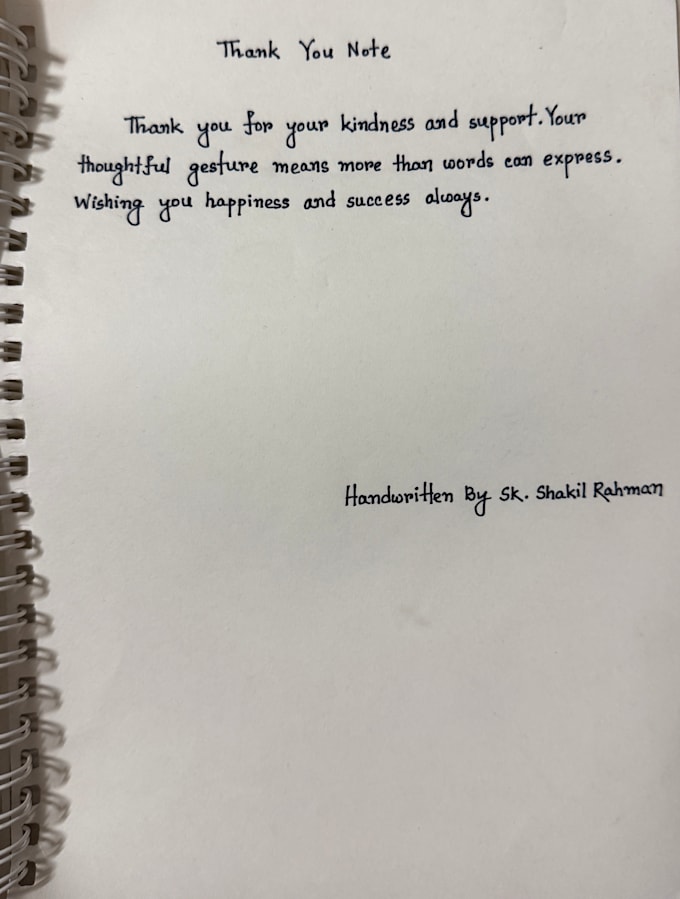 Thank You Note
Thank you for your kindness and support. Your
thoughtful gesture means more than words can express.
Wishing you happiness and success always.
Handwritten By Sk. Shakil Rahman